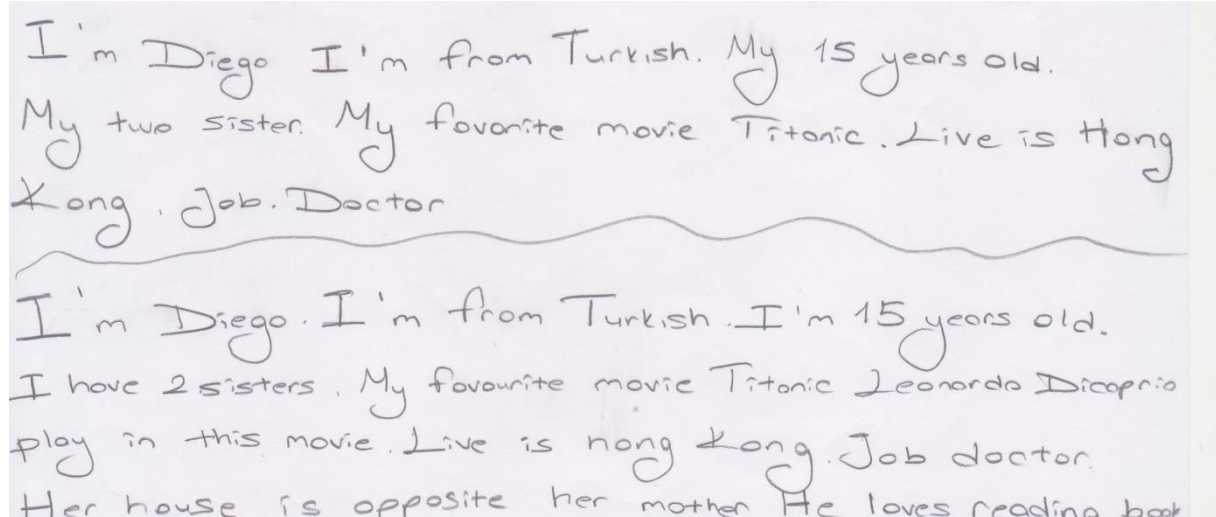 I'm Diego I'm from Turkish. My 15 years old.
My two sister. My favorite movie Titanic. Live is Hong
Kong. Job. Doctor
I'm Diego. I'm from Turkish. I'm 15 years old.
I have 2 sisters. My favourite movie Titanic Leonardo Dicaprio
play in this movie. Live is hong Kong. Job doctor.
Her house is opposite her mother He loves reading book